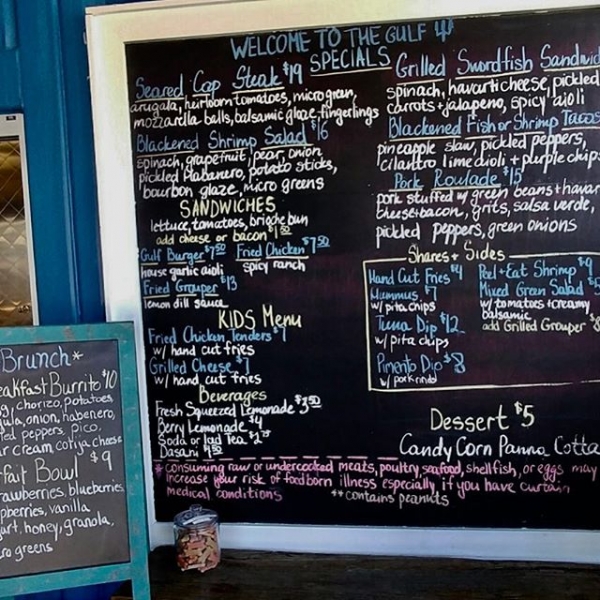 WELCOME TO THE GULF
SPECIALS
Seared Cap Steak $19
arugala, heirloom tomatoes, micro green,
mozzarella balls, balsamic glaze, fingerlings
Blackened Shrimp Salad $16
spinach, grapefruit, pear, onion
pickled habanero, potato sticks,
bourbon glaze, micro greens
SANDWICHES
lettuce, tomatoes, brioche bun
add cheese or bacon $1.50
Gulf Burger $7.50 Fried Chicken $7.50
house garlic aioli spicy ranch
Fried Grouper $13
lemon dill sauce
KIDS Menu
Fried Chicken Tenders $7
w/ hand cut fries
Grilled Cheese $7
w/ hand cut fries
Beverages
Fresh Squeezed Lemonade $3.50
Berry Lemonade $4
Soda or Iced Tea
Dasani
Grilled Swordfish Sandwic
spinach, havarti cheese, pickled
carrots + jalapeno, spicy aioli
Blackened Fish or Shrimp Tacos
pineapple slaw, pickled peppers,
cilantro lime aioli + purple chips
Pork Roulade $15
pork stuffed w/ green beans + havar
cheese + bacon, grits, salsa verde,
pickled peppers, green onions
Shares + Sides
Hand Cut Fries $4
Hummus $7
w/ pita chips
Tuna Dip $12
w/ pita chips
Pimento Dip $8
w/ pork rinds
Peel + Eat Shrimp $9
Mixed Green Salad $5
w/ tomatoes + creamy
balsamic
add Grilled Grouper $8
Dessert $5
Candy Corn Panna Cotta
* consuming raw or undercooked meats, poultry, seafood, shellfish, or eggs may
increase your risk of foodborn illness especially if you have curtain
medical conditions ** contains peanuts
Brunch*
eakfast Burrito $10
g, chorizo, potatoes
gula, onion, habenero,
led peppers, pico,
ur cream cotija cheese
fait Bowl $9
rawberries, blueberries
spberries, vanilla
gurt, honey, granola,
cro greens